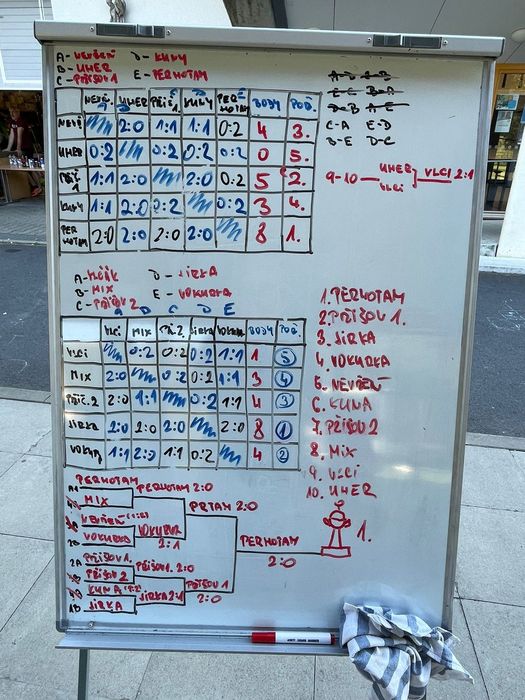 A-NEVŘEŇ D-KUNY
B-UHER E-PERHOTAM
C-PŘÍŠOV 1
NEVŘ. UHER PŘÍŠ 1. KUNY PERHOTAM BODY POŘ.
NEVŘ 2:0 1:1 1:1 0:2 4 3.
UHER 0:2 0:2 0:2 0:2 0 5.
PŘÍŠ 1. 1:1 2:0 2:0 0:2 5 2.
KUNY 1:1 2:0 0:2 0:2 3 4.
PERHOTAM 2:0 2:0 2:0 2:0 8 1.
A-D C-B
E-C B-A
D-B A-E
C-A E-D
B-E D-C
9-10 UHER VLCI VLCI 2:1
B-MIX E-VOKURKA
C-PŘÍŠOV 2
D-JIRKA
A D C D E
VLCI MIX PŘ.2 JIRKA VOKUR. BODY POŘ.
VLCI 0:2 0:2 0:2 1:1 1 5
MIX 2:0 0:2 1:1 3 4
PŘÍŠ.2 2:0 1:1 0:2 1:1 4 3
JIRKA 2:0 2:0 2:0 2:0 8 1
VOKUR. 1:1 2:0 1:1 0:2 4 2
1. PERHOTAM
2. PŘÍŠOV 1.
3. JIRKA
4. VOKURKA
5. NEVŘEŇ
6. KUNA
7. PŘÍŠOV 2
8. MIX
9. VLCI
10. UHER
PERHOTAM
MIX
PERHOTAM 2:0
NEVŘEŇ
VOKURKA
VOKURKA 2:1
PRTAM 2:0
2A PŘÍŠOV 1.
PŘÍŠOV 2
PŘÍŠOV 1. 2:0
KUNA
1B JIRKA
JIRKA 2:1
PŘÍŠOV 1 2:0
PERHOTAM 2:0
1.